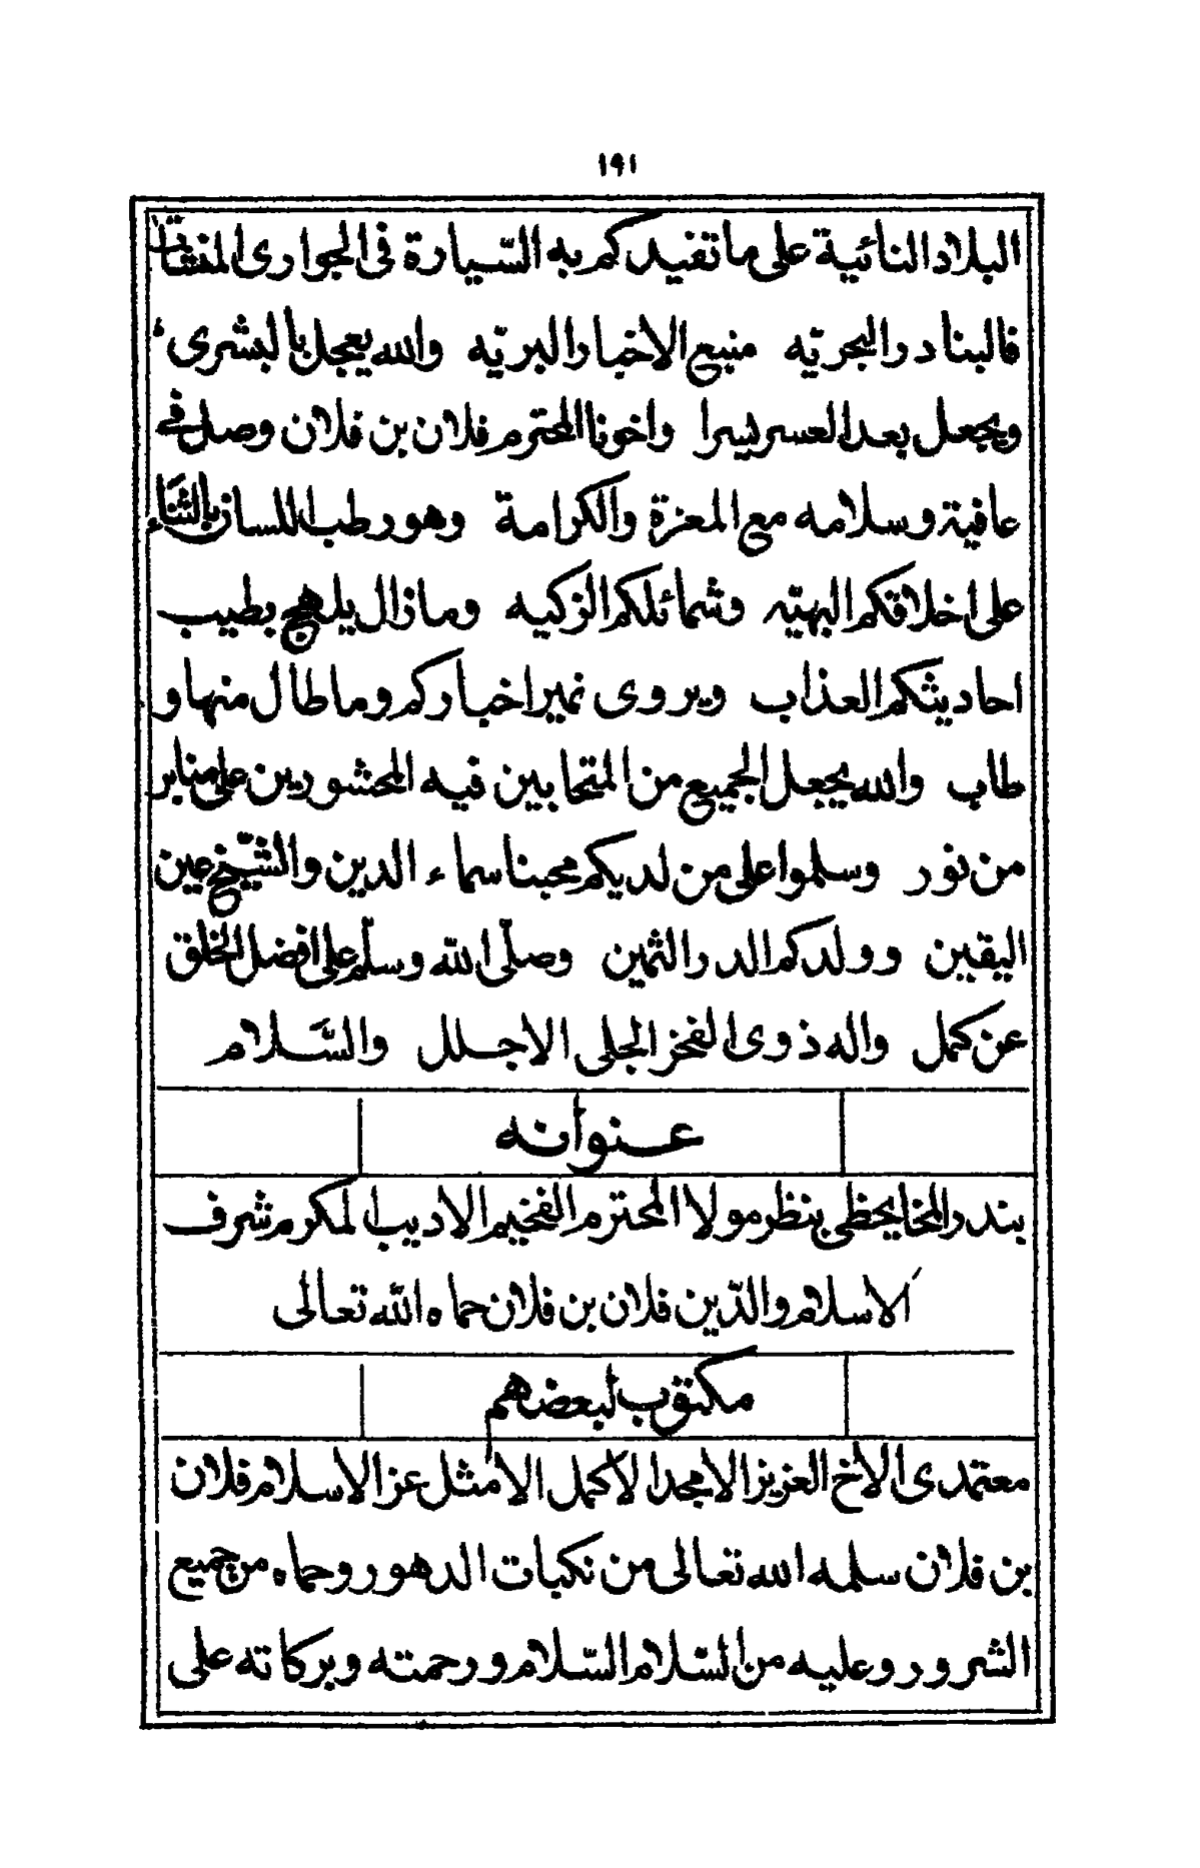 ١٩١
البلاد النائية على ما تفيدكم به السّيارة فى الجوارى المنشآت
فالبنادر البحريّه منبع الاخبار البريّه والله يعجل بالبشرى
ويجعل بعد العسر يسرا واخونا المحترم فلان بن فلان وصل فى
عافية وسلامه مع المعزة والكرامة وهو رطب اللسان بالثناء
على اخلاقكم البهيّه وشمائلكم الزكيه وما زال يلهج بطيب
احاديثكم العذاب ويروى نمير اخباركم وما طال منها و
طاب والله يجعل الجميع من المتحابين فيه المحشورين على منابر
من نور وسلموا على من لديكم محبنا سماء الدين والشّيخ عين
اليقين وولدكم الدر الثمين وصلّى الله وسلّم على افضل الخلق
عن كمل واله ذوى الفخز الجلى الاجلل والسَّلام
عنوانه
بندر المخا يحظى بنظر مولانا المحترم الفخيم الاديب المكرم شرف
الاسلام والدّين فلان بن فلان حماه الله تعالى
مكتوب لبعضهم
معتمدى الاخ العزيز الامجد الاكمل الامثل عز الاسلام فلان
بن فلان سلمه الله تعالى من نكبات الدهور وحماه من جميع
الشرور وعليه من السّلام السّلام ورحمته وبركاته على